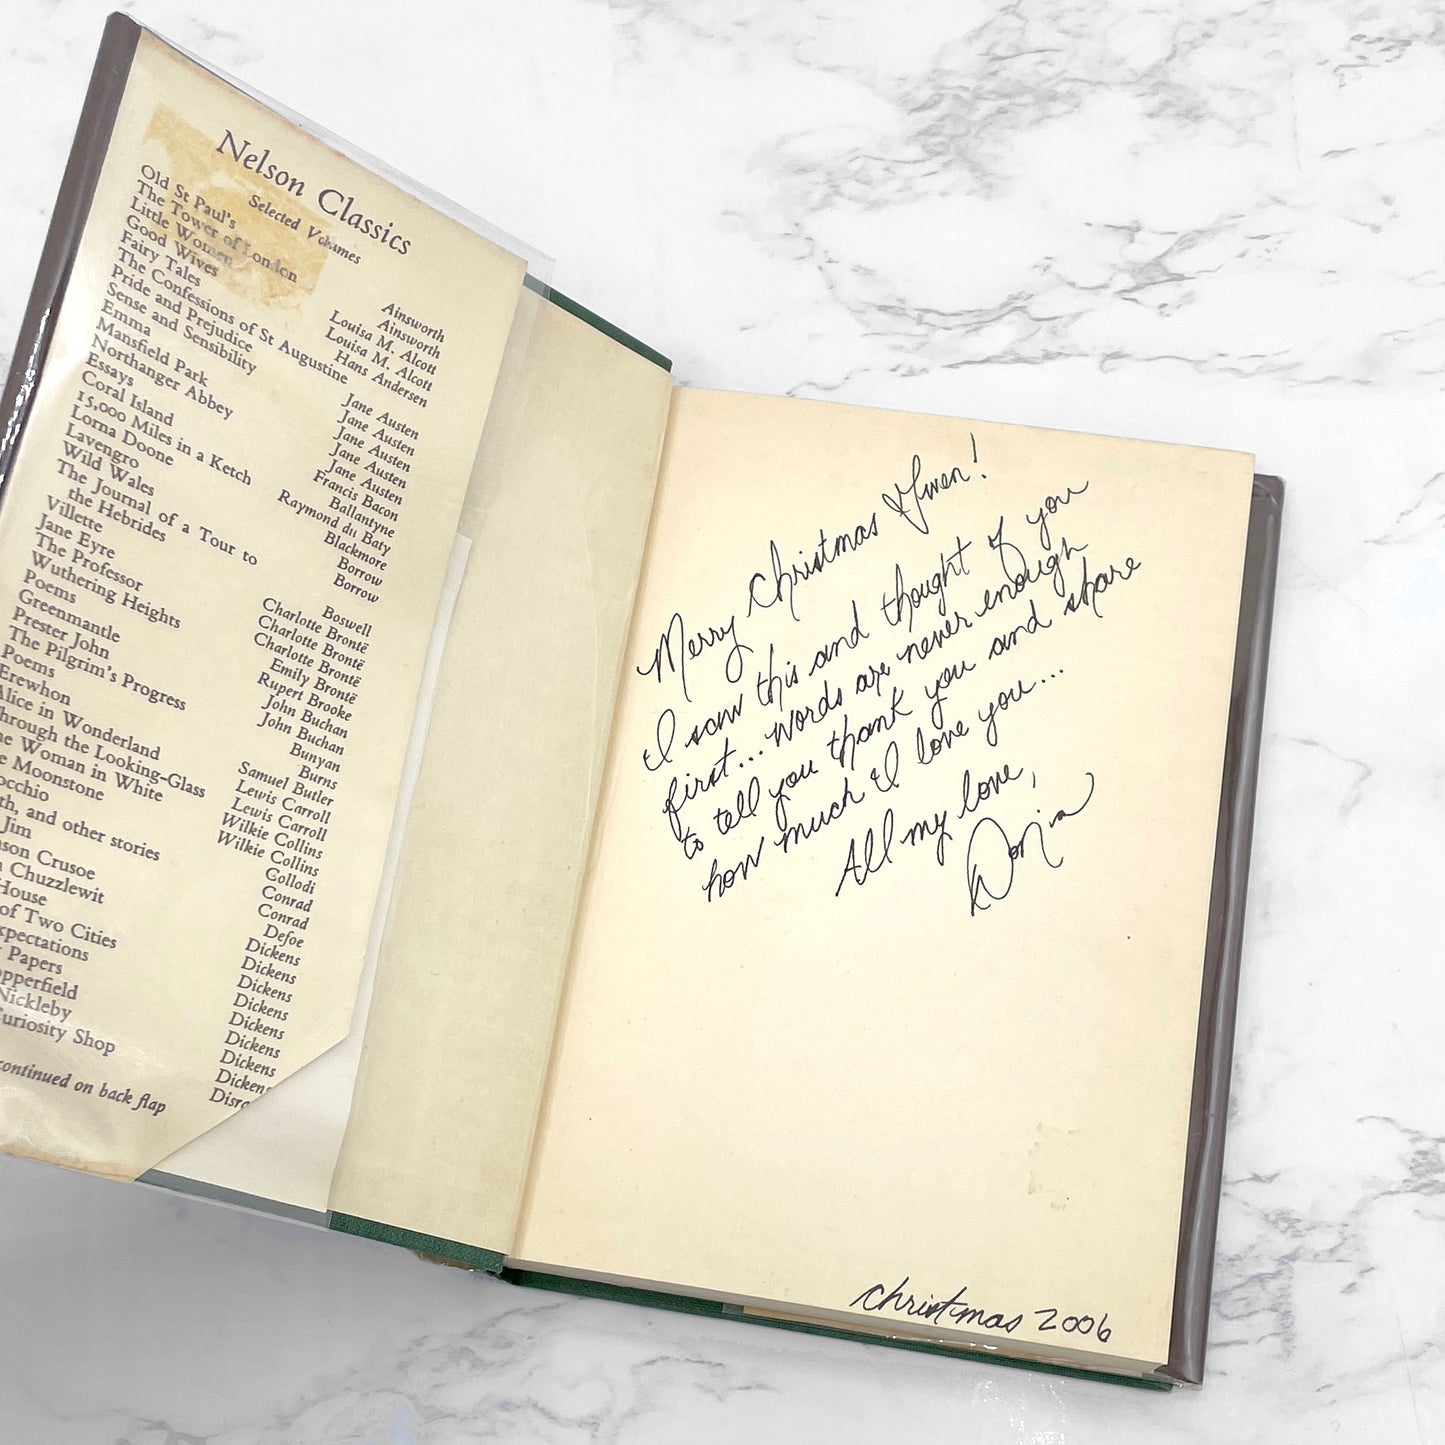 Nelson Classics
Selected Volumes
Old St Paul's Ainsworth
The Tower of London Ainsworth
Little Women Louisa M. Alcott
Good Wives Louisa M. Alcott
Fairy Tales Hans Andersen
The Confessions of St Augustine
Pride and Prejudice Jane Austen
Sense and Sensibility Jane Austen
Emma Jane Austen
Mansfield Park Jane Austen
Northanger Abbey Jane Austen
Essays Francis Bacon
Coral Island Ballantyne
15,000 Miles in a Ketch Raymond du Baty
Lorna Doone Blackmore
Lavengro Borrow
Wild Wales Borrow
The Journal of a Tour to
the Hebrides Boswell
Villette Charlotte Brontë
Jane Eyre Charlotte Brontë
The Professor Charlotte Brontë
Wuthering Heights Emily Brontë
Poems Rupert Brooke
Greenmantle John Buchan
Prester John John Buchan
The Pilgrim's Progress Bunyan
Poems Burns
Erewhon Samuel Butler
Alice in Wonderland Lewis Carroll
hrough the Looking-Glass Lewis Carroll
ne Woman in White Wilkie Collins
e Moonstone Wilkie Collins
occhio Collodi
th, and other stories Conrad
Jim Conrad
nson Crusoe Defoe
n Chuzzlewit Dickens
House Dickens
of Two Cities Dickens
xpectations Dickens
Papers Dickens
opperfield Dickens
Nickleby Dickens
uriosity Shop Dickens
Disra
continued on back flap
Merry Christmas Gwen!
I saw this and thought of you
first... words are never enough
to tell you thank you and share
how much I love you...
All my love,
Christmas 2006